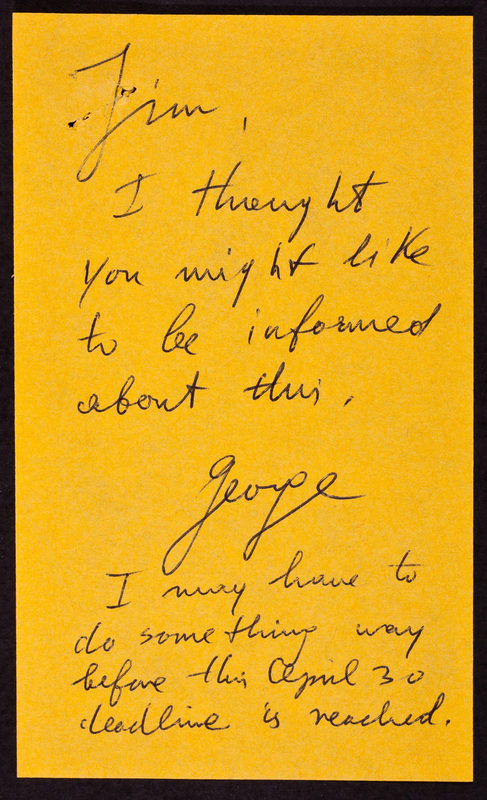 Jim,
I thought
you might like
to be informed
about this.
George
I may have to
do something way
before this April 30
deadline is reached.